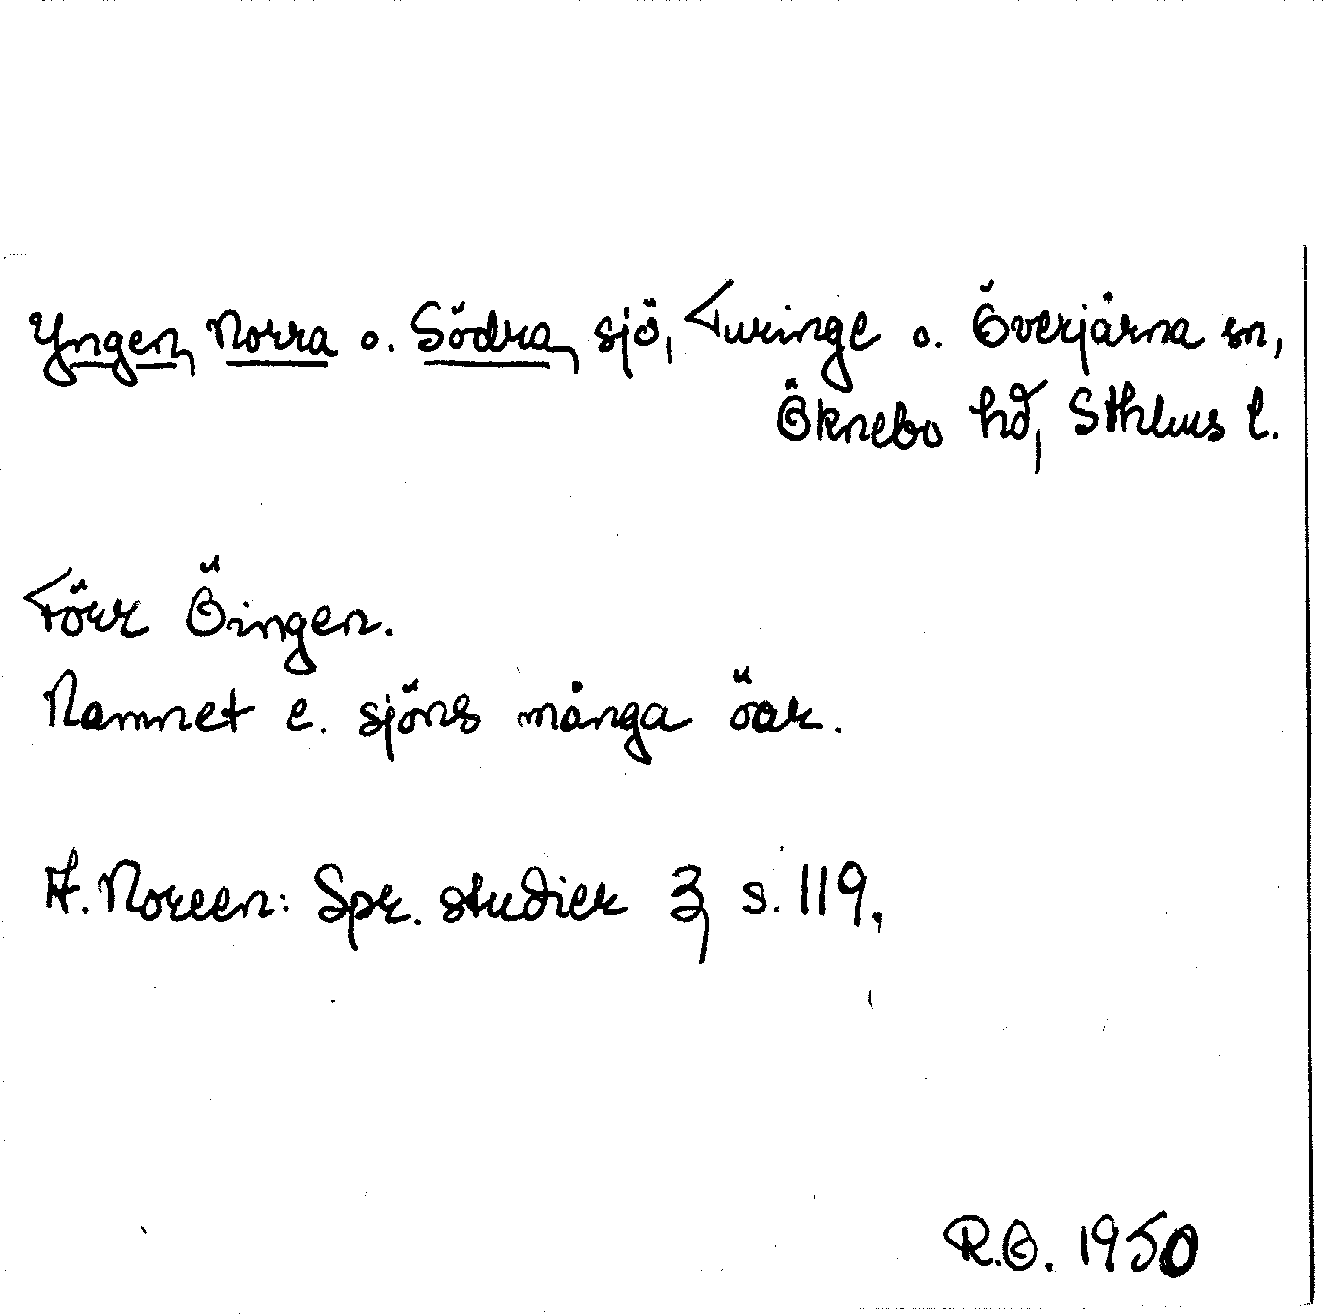 Yngen, Norra o. Södra, sjö, Turinge o. Överjärna sn,
Öknebo hd, Sthlms l.
Förr Öingen.
Namnet e. sjöns många öar.
A. Noreen: Spr. studier 3, s. 119.
R.O. 1950